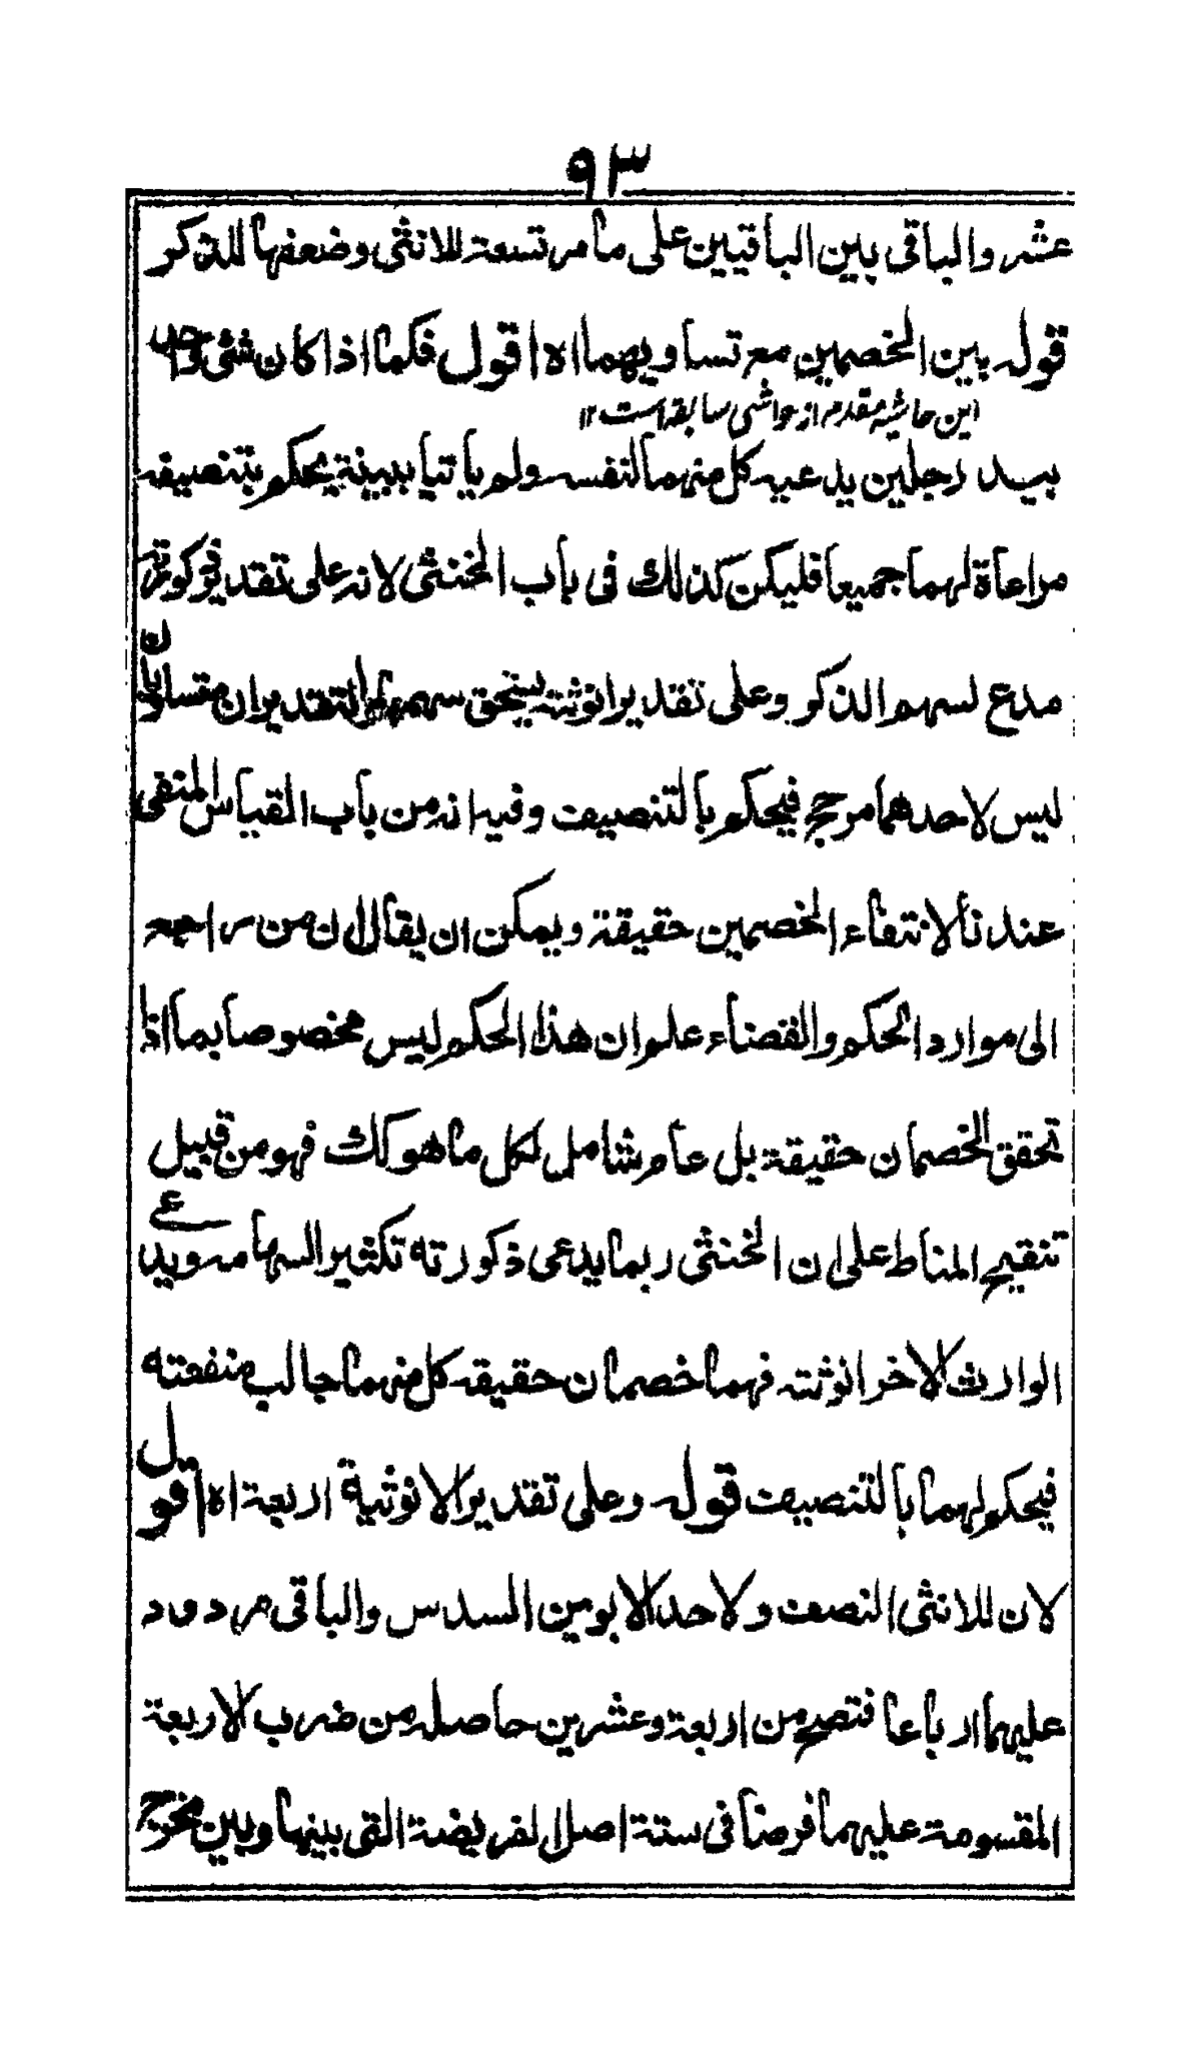 ٩٣
عشر والباقى بين الباقيين على ما مر تسعة للانثى وضعفها للذكر
قوله بين الخصمين مع تساويهما اه اقول فكما اذا كان شئ فى
اين حاشيه مقدم از حواشى سابقه است ١٢
بيد رجلين يدعيه كل منهما لنفسه ولم ياتيا ببينة يحكم بتنصيفه
مراعاة لهما جميعا فليكن كذلك فى باب الخنثى لانه على تقدير ذكورته
مدع لسهم الذكر وعلى تقدير انوثته يستحق سهمها والتقديران متساويان
ليس لاحدهما مرجح فيحكم بالتنصيف وفيه انه من باب القياس المنفى
عندنا لانتفاء الخصمين حقيقة ويمكن ان يقال ان من راجع
الى موارد الحكم والقضاء علم ان هذا الحكم ليس مخصوصا بما اذا
تحقق الخصمان حقيقة بل عام شامل لكل ما هو كك فهو من قبيل
تنقيح المناط على ان الخنثى ربما يدعى ذكورته تكثير السهامه ويدعى
الوارث الاخر انوثته فهما خصمان حقيقه كل منهما جالب منفعته
فيحكم لهما بالتنصيف قوله وعلى تقدير الانوثية اربعة اه اقول
لان للانثى النصف ولاحد الابوين السدس والباقى مردود
عليهما ارباعا فتصح من اربعة وعشرين حاصله من ضرب الاربعة
المقسومة عليهما فرضا فى ستة اصل الفريضة التى بينها وبين مخرج